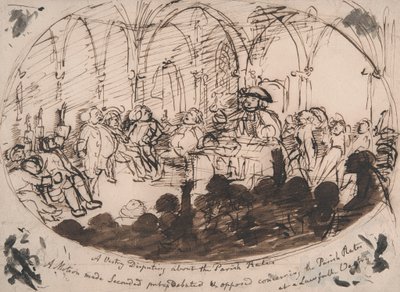 A Vestry disputing about the Parish Rates
A Motion made Seconded put debated & opposed concerning the Parish Rates
at a Lawfull Vestry